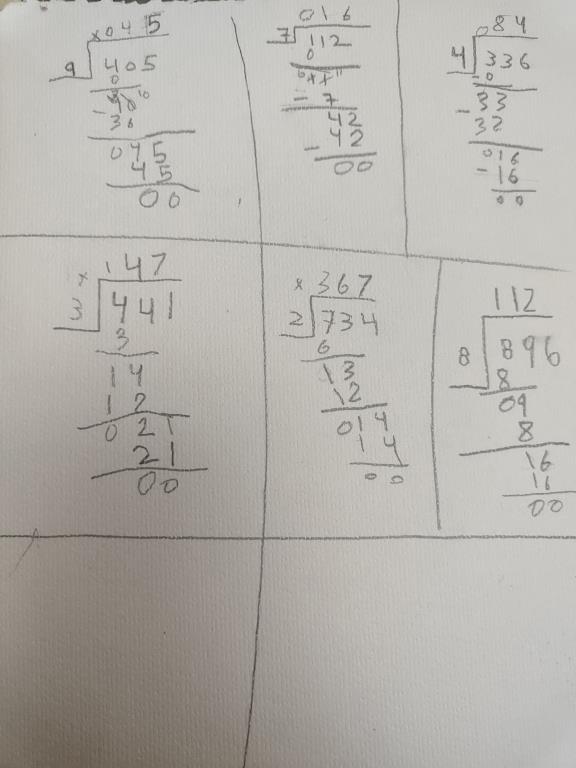 ×045
9 405
0
- 40
36
045
45
00
016
7 112
0
11
- 7
42
- 42
00
084
4 336
- 0
33
- 32
016
- 16
00
× 147
3 441
3
14
12
021
21
00
× 367
2 734
6
13
12
014
14
00
112
8 896
8
09
8
16
16
00